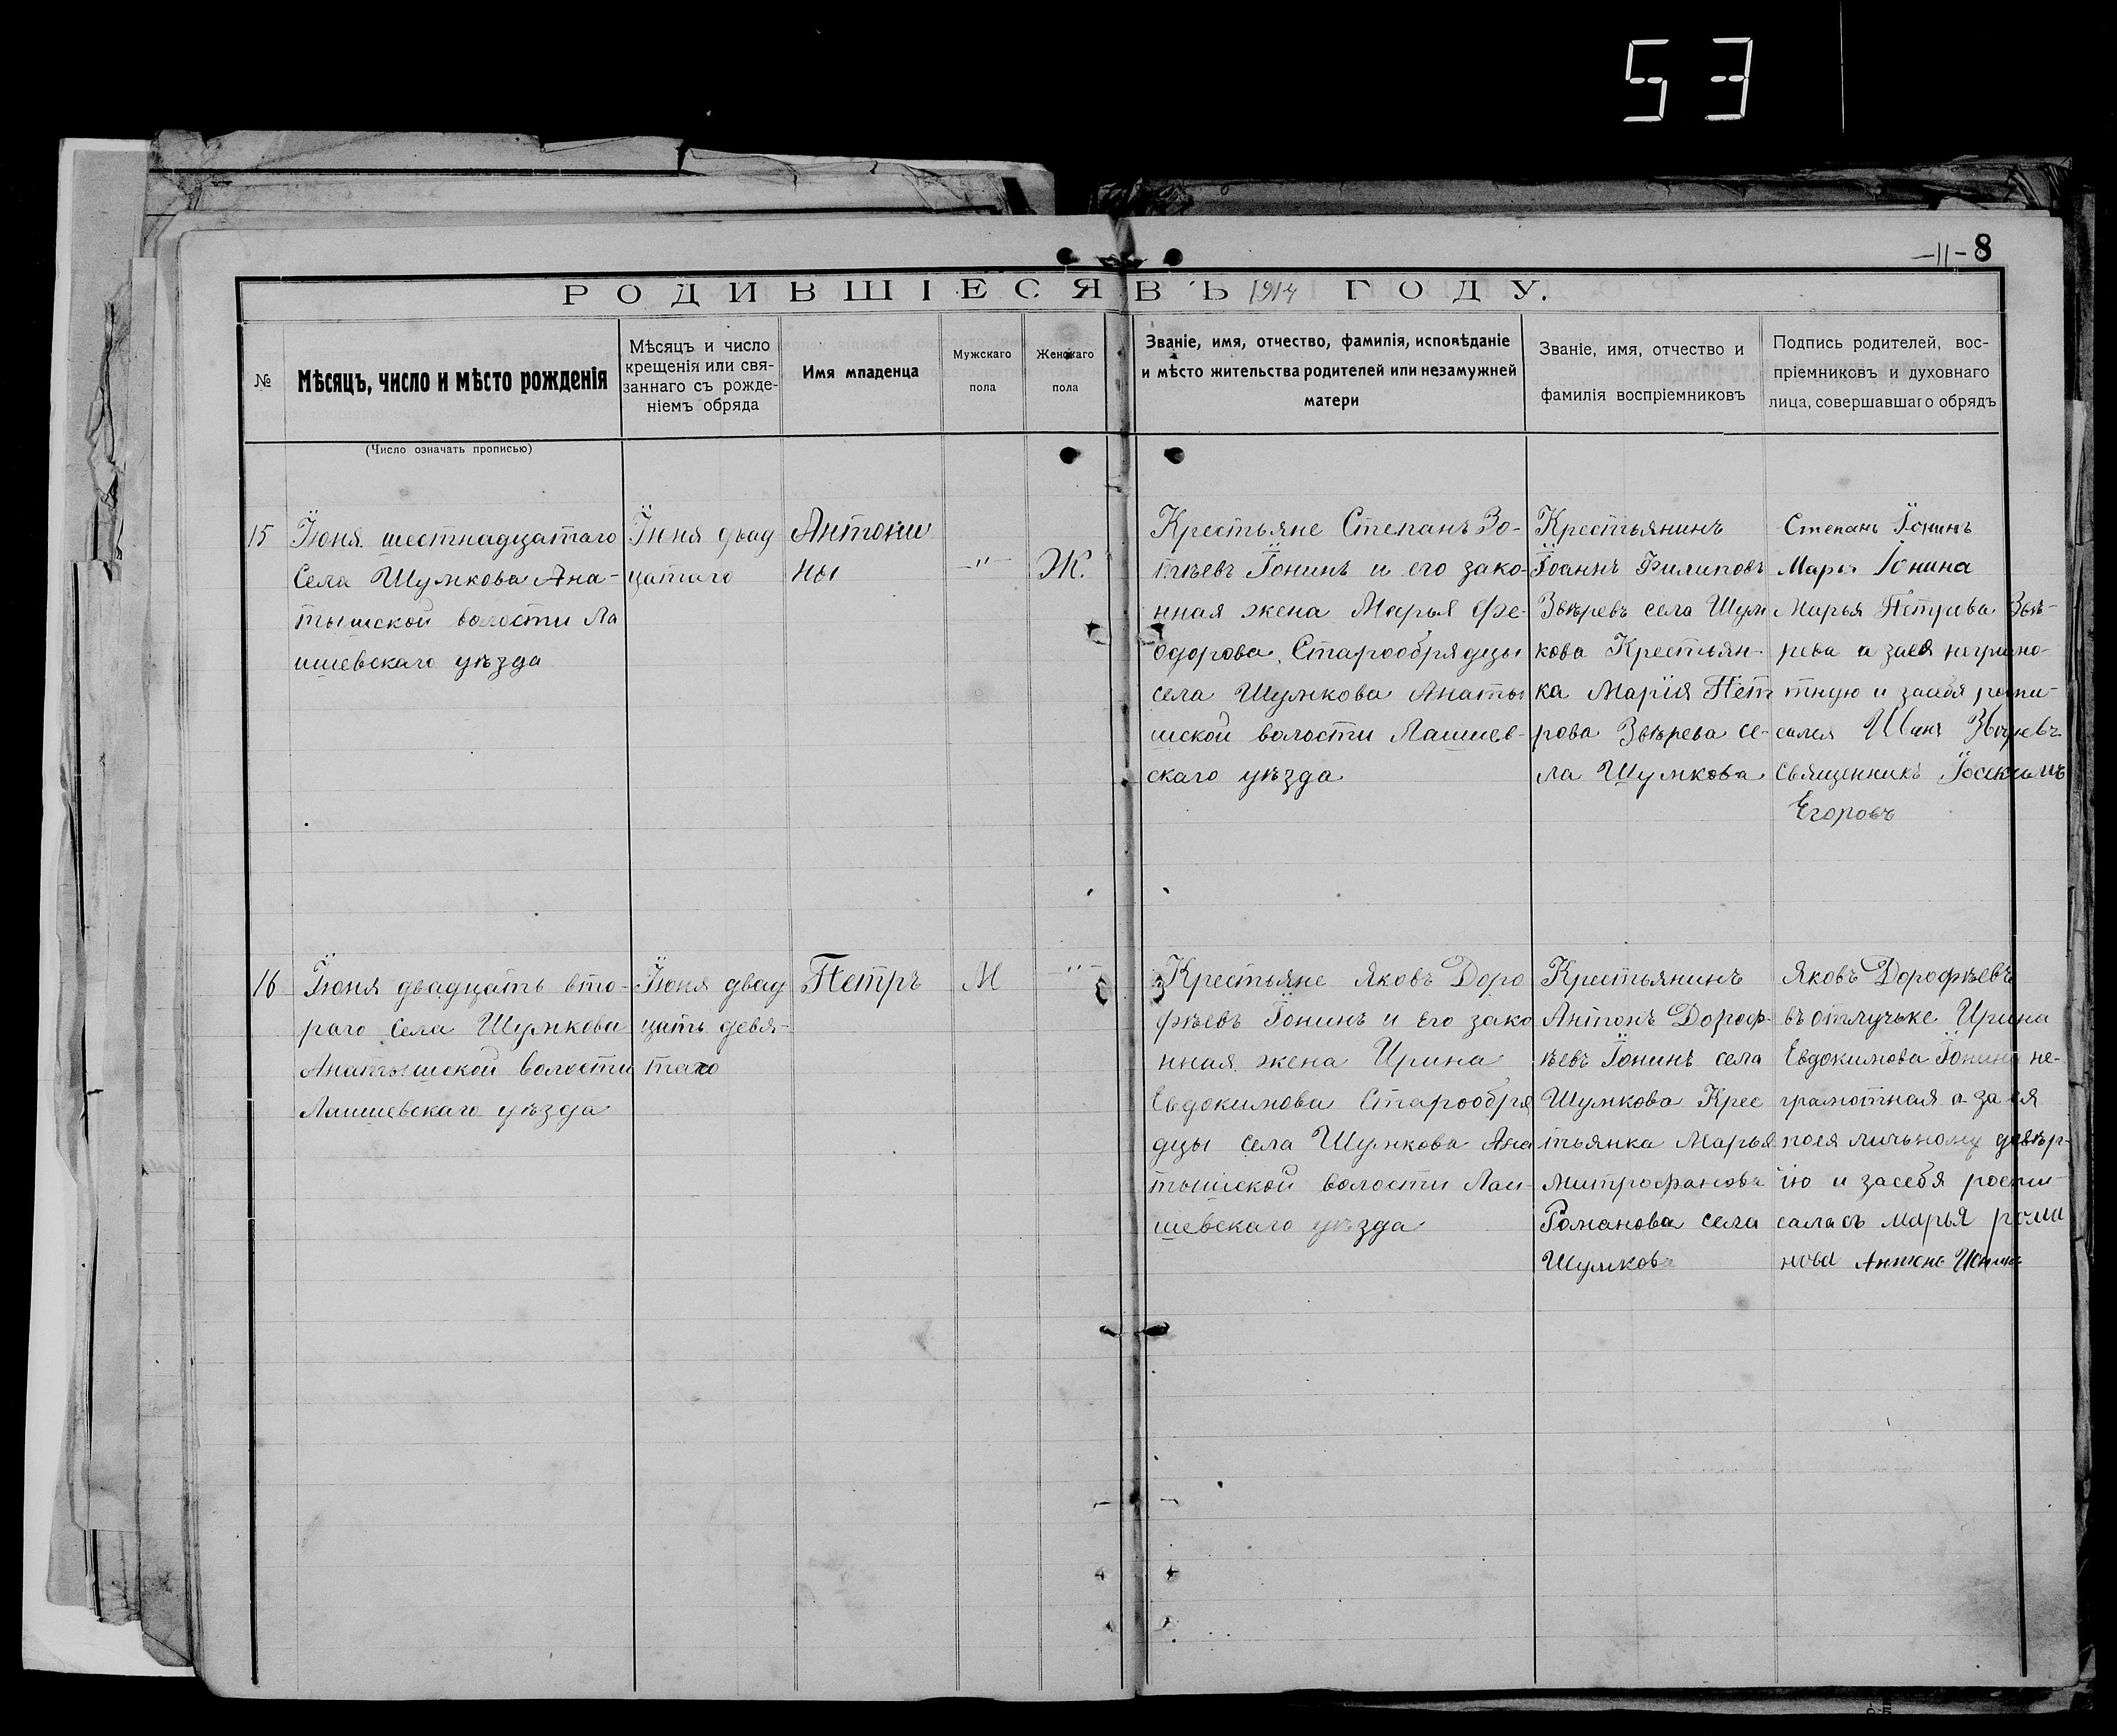 53
-11- 8
РОДИВШІЕСЯ ВЪ 1914 ГОДУ.
№
Мѣсяцъ, число и мѣсто рожденія
Мѣсяцъ и число
крещенія или свя-
заннаго съ рожде-
ніемъ обряда
Имя младенца
Мужскаго
пола
Женскаго
пола
Званіе, имя, отчество, фамилія, исповѣданіе
и мѣсто жительства родителей или незамужней
матери
Званіе, имя, отчество и
фамилія воспріемниковъ
Подпись родителей, вос-
пріемниковъ и духовнаго
лица, совершавшаго обрядъ
(Число означать прописью)
15
Іюня шестнадцатаго
Села Шумкова Ана-
тышской волости Ла
ишевскаго уѣзда
Іюня двад
цатаго
Антони
ны
-"-
Ж.
Крестьяне Степанъ Зо-
тѣевъ Іонинъ и его зако-
нная жена Марья Фе-
одорова, Старообрядцы
села Шумкова Анаты
шской волости Лаишев-
скаго уѣзда
Крестьянинъ
Іоаннъ Филиповъ
Звѣревъ села Шум
кова Крестьян-
ка Марія Пет
рова Звѣрева се-
ла Шумкова
Степанъ Іонинъ
Марья Іонина
Марья Петрова Звѣ-
рева а заея неграмо-
тную и засебя роспи-
сался Иванъ Звѣревъ
Священникъ
Егоровъ
16
Іюня двадцать вто-
раго Села Шумкова
Анатышской волости
Лаишевскаго уѣзда
Іюня двад
цать девя-
таго
Петръ
М
-"-
Крестьяне Яковъ Доро
фѣевъ Іонинъ и Его зако
нная жена Ирина
Евдокимова Старообря
дцы села Шумкова Ана
тышской волости Лаи-
шевскаго уѣзда
Крестьянинъ
Антонъ Дороф-
ѣевъ Іонинъ села
Шумкова Крес
тьянка Марья
Митрофанова
Романова села
Шумкова
Яковъ Дорофѣевъ
въ отлучьке Ирина
Евдокимова Іонина не-
грамотная а за ея
поея личьному довѣр-
ію и засебя роспи-
саласъ марья рома
нова Антонъ Ионинъ